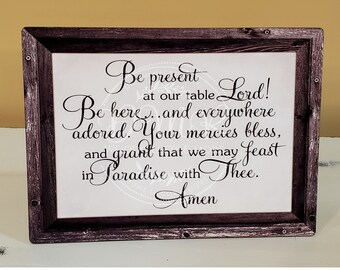 Be present
at our table Lord!
Be here...and everywhere
adored. Your mercies bless,
and grant that we may feast
in Paradise with Thee.
Amen